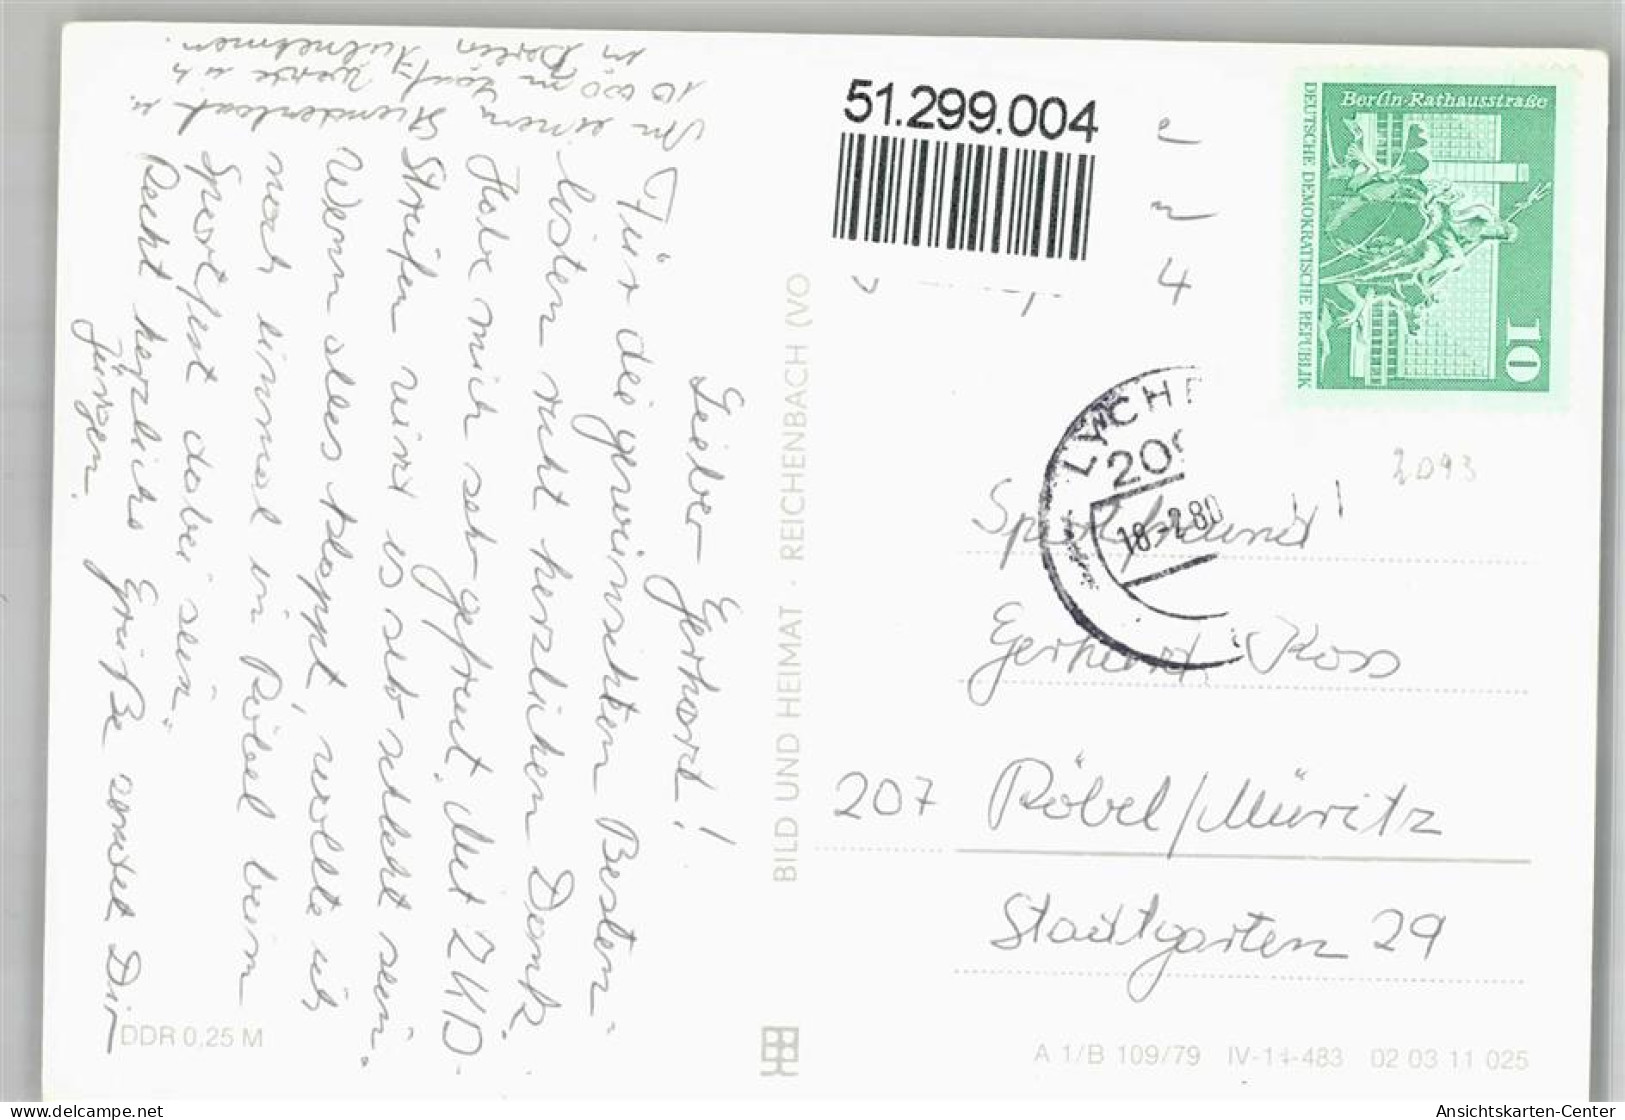 Lieber Gerhard!
Für die gewünschten Besten-
listen recht herzlichen Dank.
Habe mich sehr gefreut. Mit 2 KD-
Streifen wird es sehr schlecht sein.
Wenn alles klappt, wollte ich
noch einmal in Röbel beim
Sportfest dabei sein.
Recht herzliche Grüße sendet Dir
Jürgen.
An einem Stundenlauf u.
10 000 m Lauf werde ich
in Berlin teilnehmen.
BILD UND HEIMAT · REICHENBACH (VO
DDR 0,25 M
51.299.004
Berlin-Rathausstraße
DEUTSCHE DEMOKRATISCHE REPUBLIK
10
LYCHE
209
18.-2.80
2093
Sportfreund
Gerhard Koss
207 Röbel/Müritz
Stadtgarten 29
A 1/B 109/79 IV-14-483 02 03 11 025
Ansichtskarten-Center